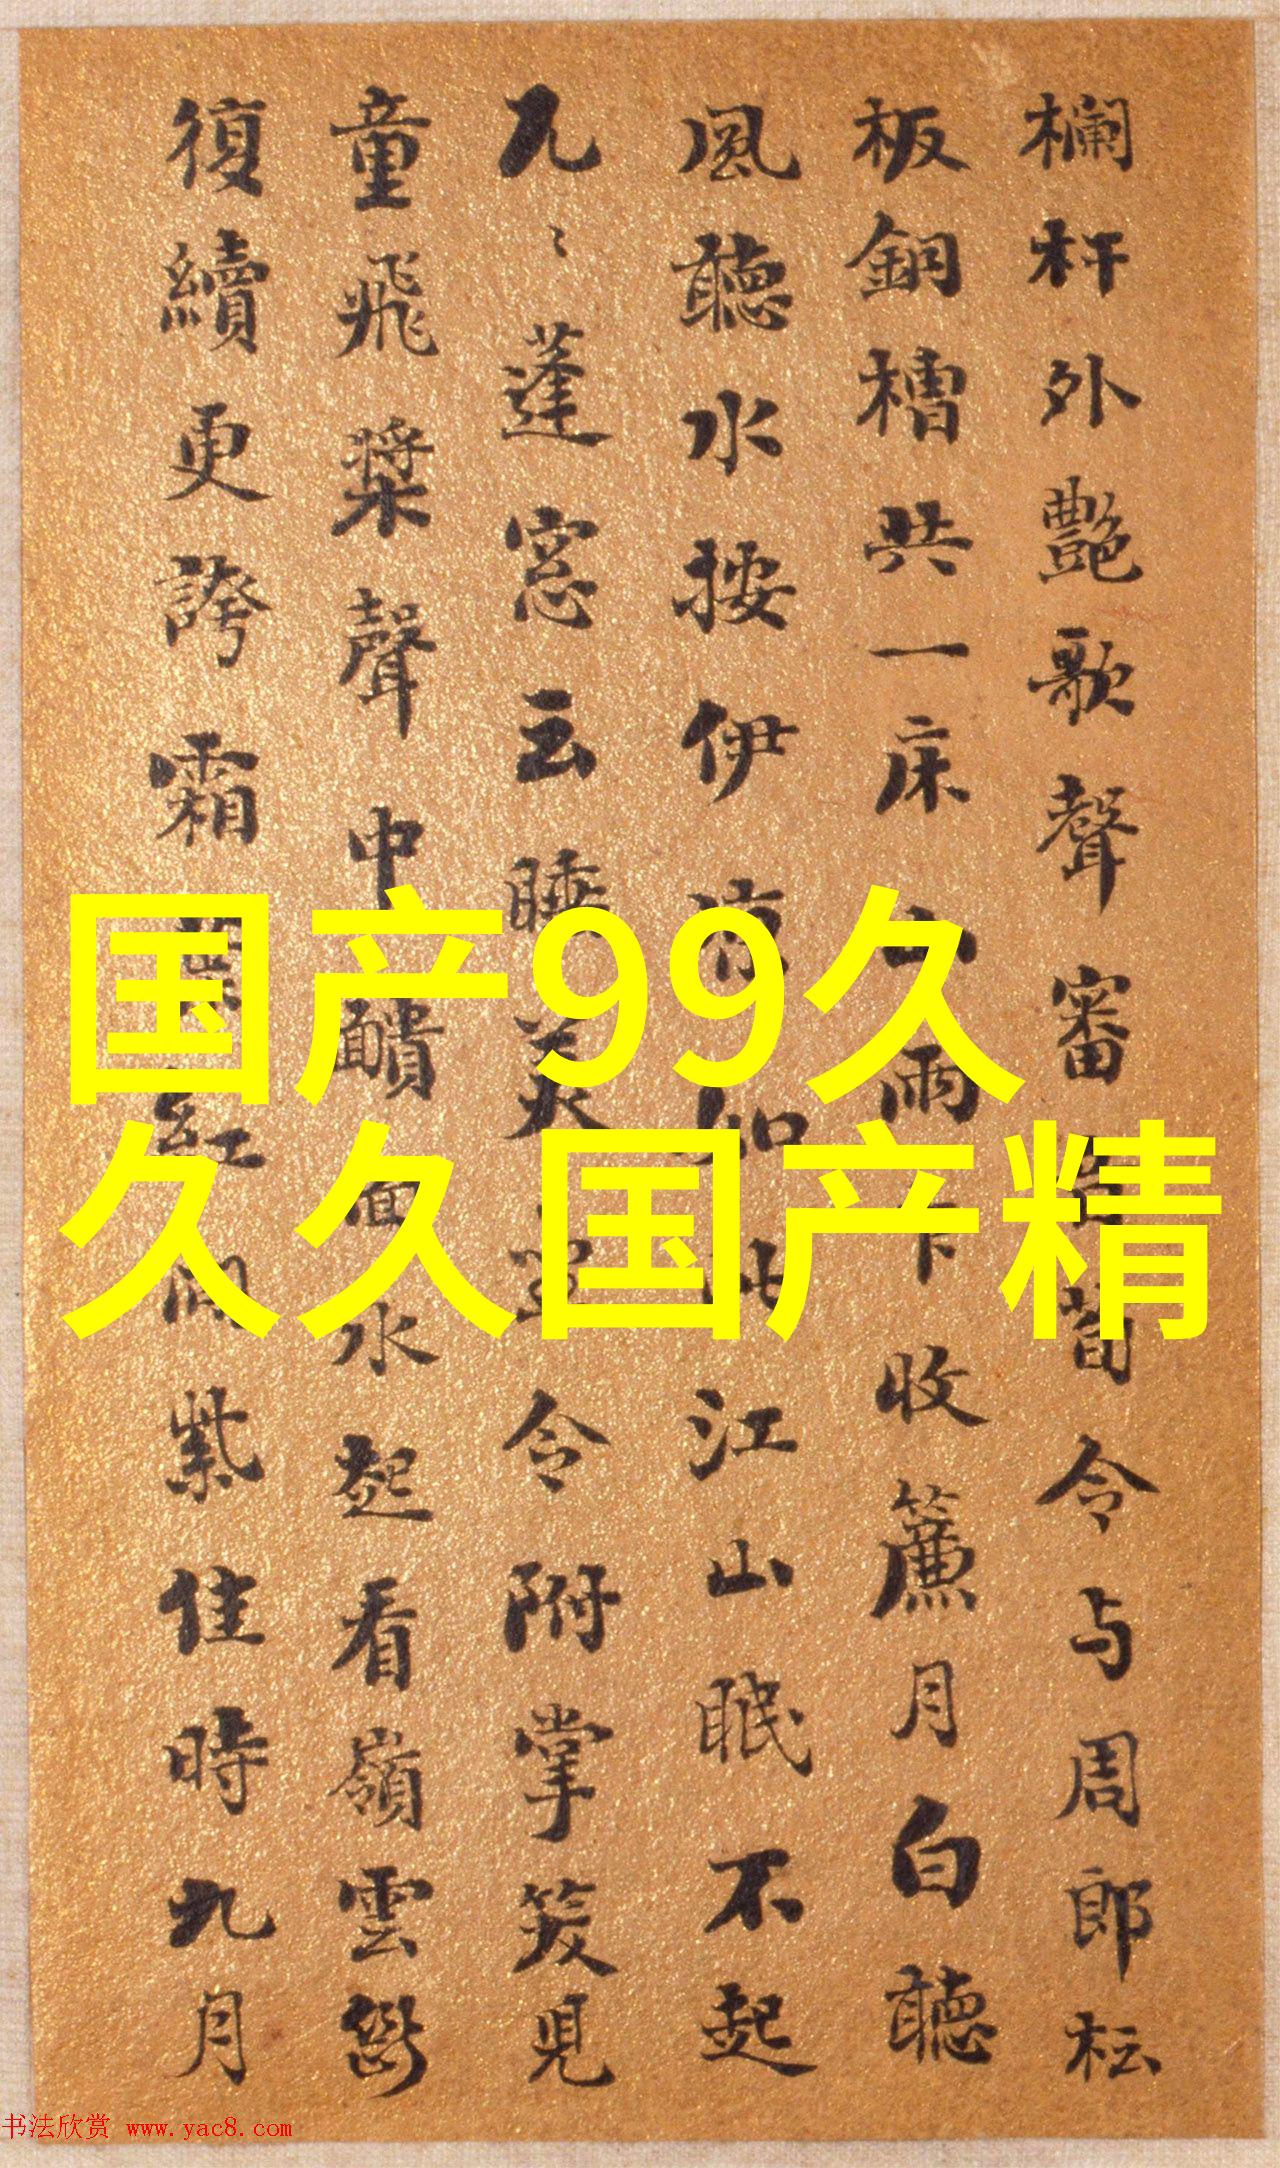 欄杆外艷歌聲審 令与周郎枟
板銅槽共一床 雨下收簾月白聽
風聽水按伊涼如此江山眠不起
凡〻蓬窓云睡美 令附掌笑見
童飛槳聲中 面水起看嶺雲
復續更誇霜葉紅 紫佳時九月
国产99久
久久国产精
书法欣赏 www.yac8.com